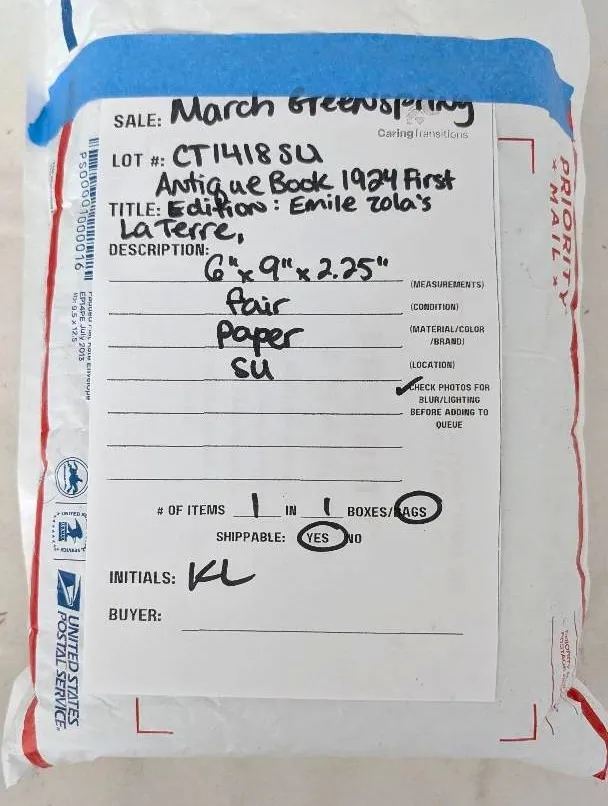 SALE: March Greenspring
CaringTransitions
LOT #: CT1418SU
Antique Book 1924 First
TITLE: Edition: Emile Zola's
La Terre,
DESCRIPTION:
6" x 9" x 2.25"
(MEASUREMENTS)
fair
(CONDITION)
Paper
(MATERIAL/COLOR
/BRAND)
SU
(LOCATION)
CHECK PHOTOS FOR
BLUR/LIGHTING
BEFORE ADDING TO
QUEUE
# OF ITEMS 1 IN 1 BOXES/BAGS
SHIPPABLE: YES NO
INITIALS: KL
BUYER:
PRIORITY
MAIL
PS00001000016
EP14PE July 2013
OD: 9.5 x 12.5
UNITED STATES
POSTAL SERVICE